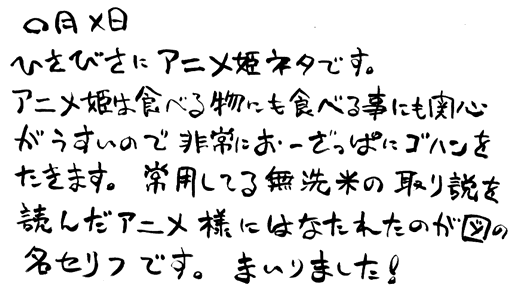 〇月×日
ひさびさにアニメ姫ネタです。
アニメ姫は食べる物にも食べる事にも関心
がうすいので非常におーざっぱにゴハンを
たきます。常用してる無洗米の取り説を
読んだアニメ様にはなたれたのが図の
名セリフです。まいりました!